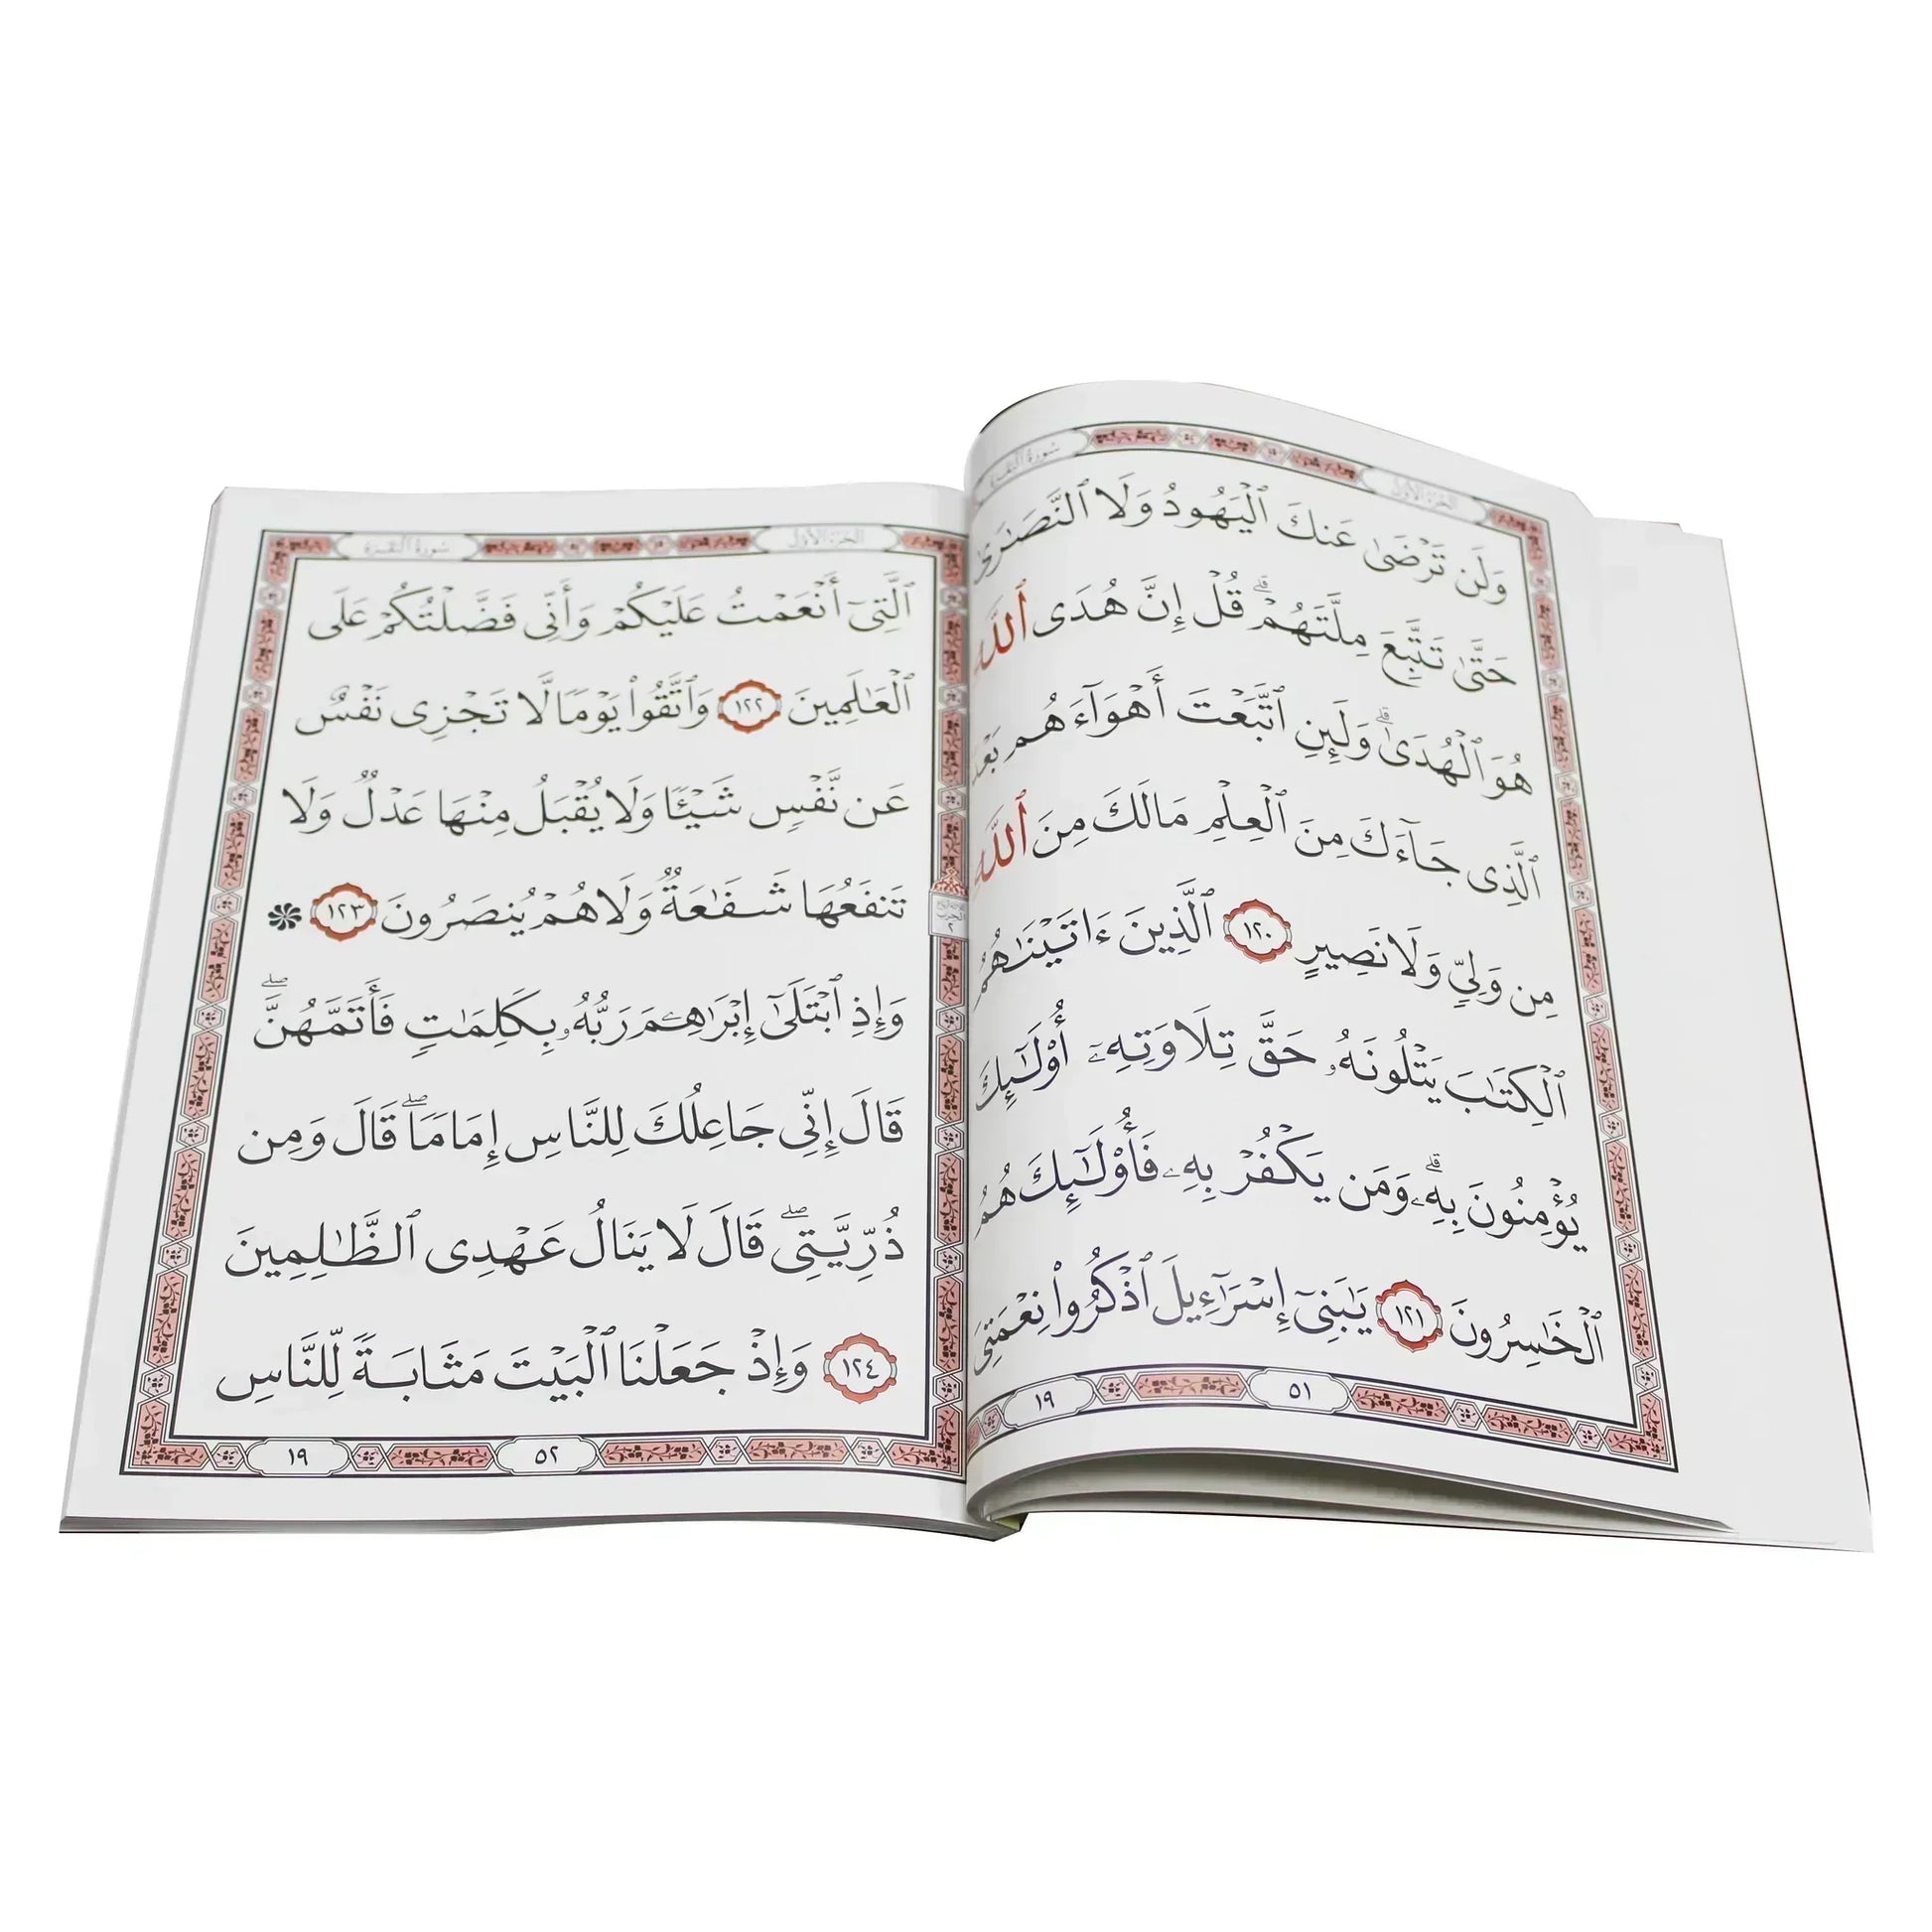 سُورَةُ البَقَرَةِ
الجُزْءُ الأَوَّلُ
وَلَن تَرْضَىٰ عَنكَ ٱلْيَهُودُ وَلَا ٱلنَّصَٰرَىٰ
حَتَّىٰ تَتَّبِعَ مِلَّتَهُمْ ۗ قُلْ إِنَّ هُدَى ٱللَّهِ
هُوَ ٱلْهُدَىٰ ۗ وَلَئِنِ ٱتَّبَعْتَ أَهْوَآءَهُم بَعْدَ
ٱلَّذِى جَآءَكَ مِنَ ٱلْعِلْمِ مَا لَكَ مِنَ ٱللَّهِ
مِن وَلِىٍّ وَلَا نَصِيرٍ ١٢٠ ٱلَّذِينَ ءَاتَيْنَٰهُمُ
ٱلْكِتَٰبَ يَتْلُونَهُۥ حَقَّ تِلَاوَتِهِۦٓ أُو۟لَٰٓئِكَ
يُؤْمِنُونَ بِهِۦ ۗ وَمَن يَكْفُرْ بِهِۦ فَأُو۟لَٰٓئِكَ هُمُ
ٱلْخَٰسِرُونَ ١٢١ يَٰبَنِىٓ إِسْرَٰٓءِيلَ ٱذْكُرُوا۟ نِعْمَتِىَ
٥١
١٩
سُورَةُ البَقَرَةِ
الجُزْءُ الأَوَّلُ
ٱلَّتِىٓ أَنْعَمْتُ عَلَيْكُمْ وَأَنِّى فَضَّلْتُكُمْ عَلَى
ٱلْعَٰلَمِينَ ١٢٢ وَٱتَّقُوا۟ يَوْمًا لَّا تَجْزِى نَفْسٌ
عَن نَّفْسٍ شَيْـًٔا وَلَا يُقْبَلُ مِنْهَا عَدْلٌ وَلَا
تَنفَعُهَا شَفَٰعَةٌ وَلَا هُمْ يُنصَرُونَ ١٢٣
وَإِذِ ٱبْتَلَىٰٓ إِبْرَٰهِـۧمَ رَبُّهُۥ بِكَلِمَٰتٍ فَأَتَمَّهُنَّ ۖ
قَالَ إِنِّى جَاعِلُكَ لِلنَّاسِ إِمَامًا ۖ قَالَ وَمِن
ذُرِّيَّتِى ۖ قَالَ لَا يَنَالُ عَهْدِى ٱلظَّٰلِمِينَ
١٢٤ وَإِذْ جَعَلْنَا ٱلْبَيْتَ مَثَابَةً لِّلنَّاسِ
٥٢
١٩